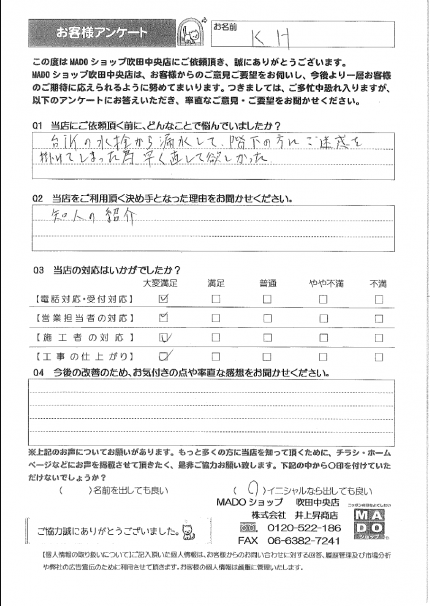 お客様アンケート
お名前 K H
この度は MADO ショップ吹田中央店にご依頼頂き、誠にありがとうございます。
MADO ショップ吹田中央店は、お客様からのご意見ご要望をお伺いし、今後より一層お客様
のご期待に応えられるように努めてまいります。つきましては、ご多忙中恐れ入りますが、
以下のアンケートにお答えいただき、率直なご意見・ご要望をお聞かせください。
Q1 当店にご依頼頂く前に、どんなことで悩んでいましたか?
台所の水栓から漏水して、階下の方にご迷惑を
掛けてしまった為 早く直して欲しかった
Q2 当店をご利用頂く決め手となった理由をお聞かせください。
知人の紹介
Q3 当店の対応はいかがでしたか?
大変満足 満足 普通 やや不満 不満
【電話対応・受付対応】
【営業担当者の対応】
【施工者の対応】
【工事の仕上がり】
Q4 今後の改善のため、お気付きの点や率直な感想をお聞かせください。
※上記のお声についてお願いがあります。もっと多くの方に当店を知って頂くために、チラシ・ホーム
ページなどにお声を掲載させて頂きたく、是非ご協力お願い致します。下記の中から〇印を付けていた
だけないでしょうか?
( )名前を出しても良い (〇)イニシャルなら出しても良い
MADO ショップ 吹田中央店
株式会社 井上昇商店
0120-522-186
FAX 06-6382-7241
MADO
ショップ
ご協力誠にありがとうございました。
【個人情報の取り扱いについて】ご記入頂いた個人情報は、お客様からのお問い合わせに対する回答、履歴管理及び市場分析
や弊社の広告宣伝のために利用させて頂きます。お客様の個人情報は厳重に管理いたします。